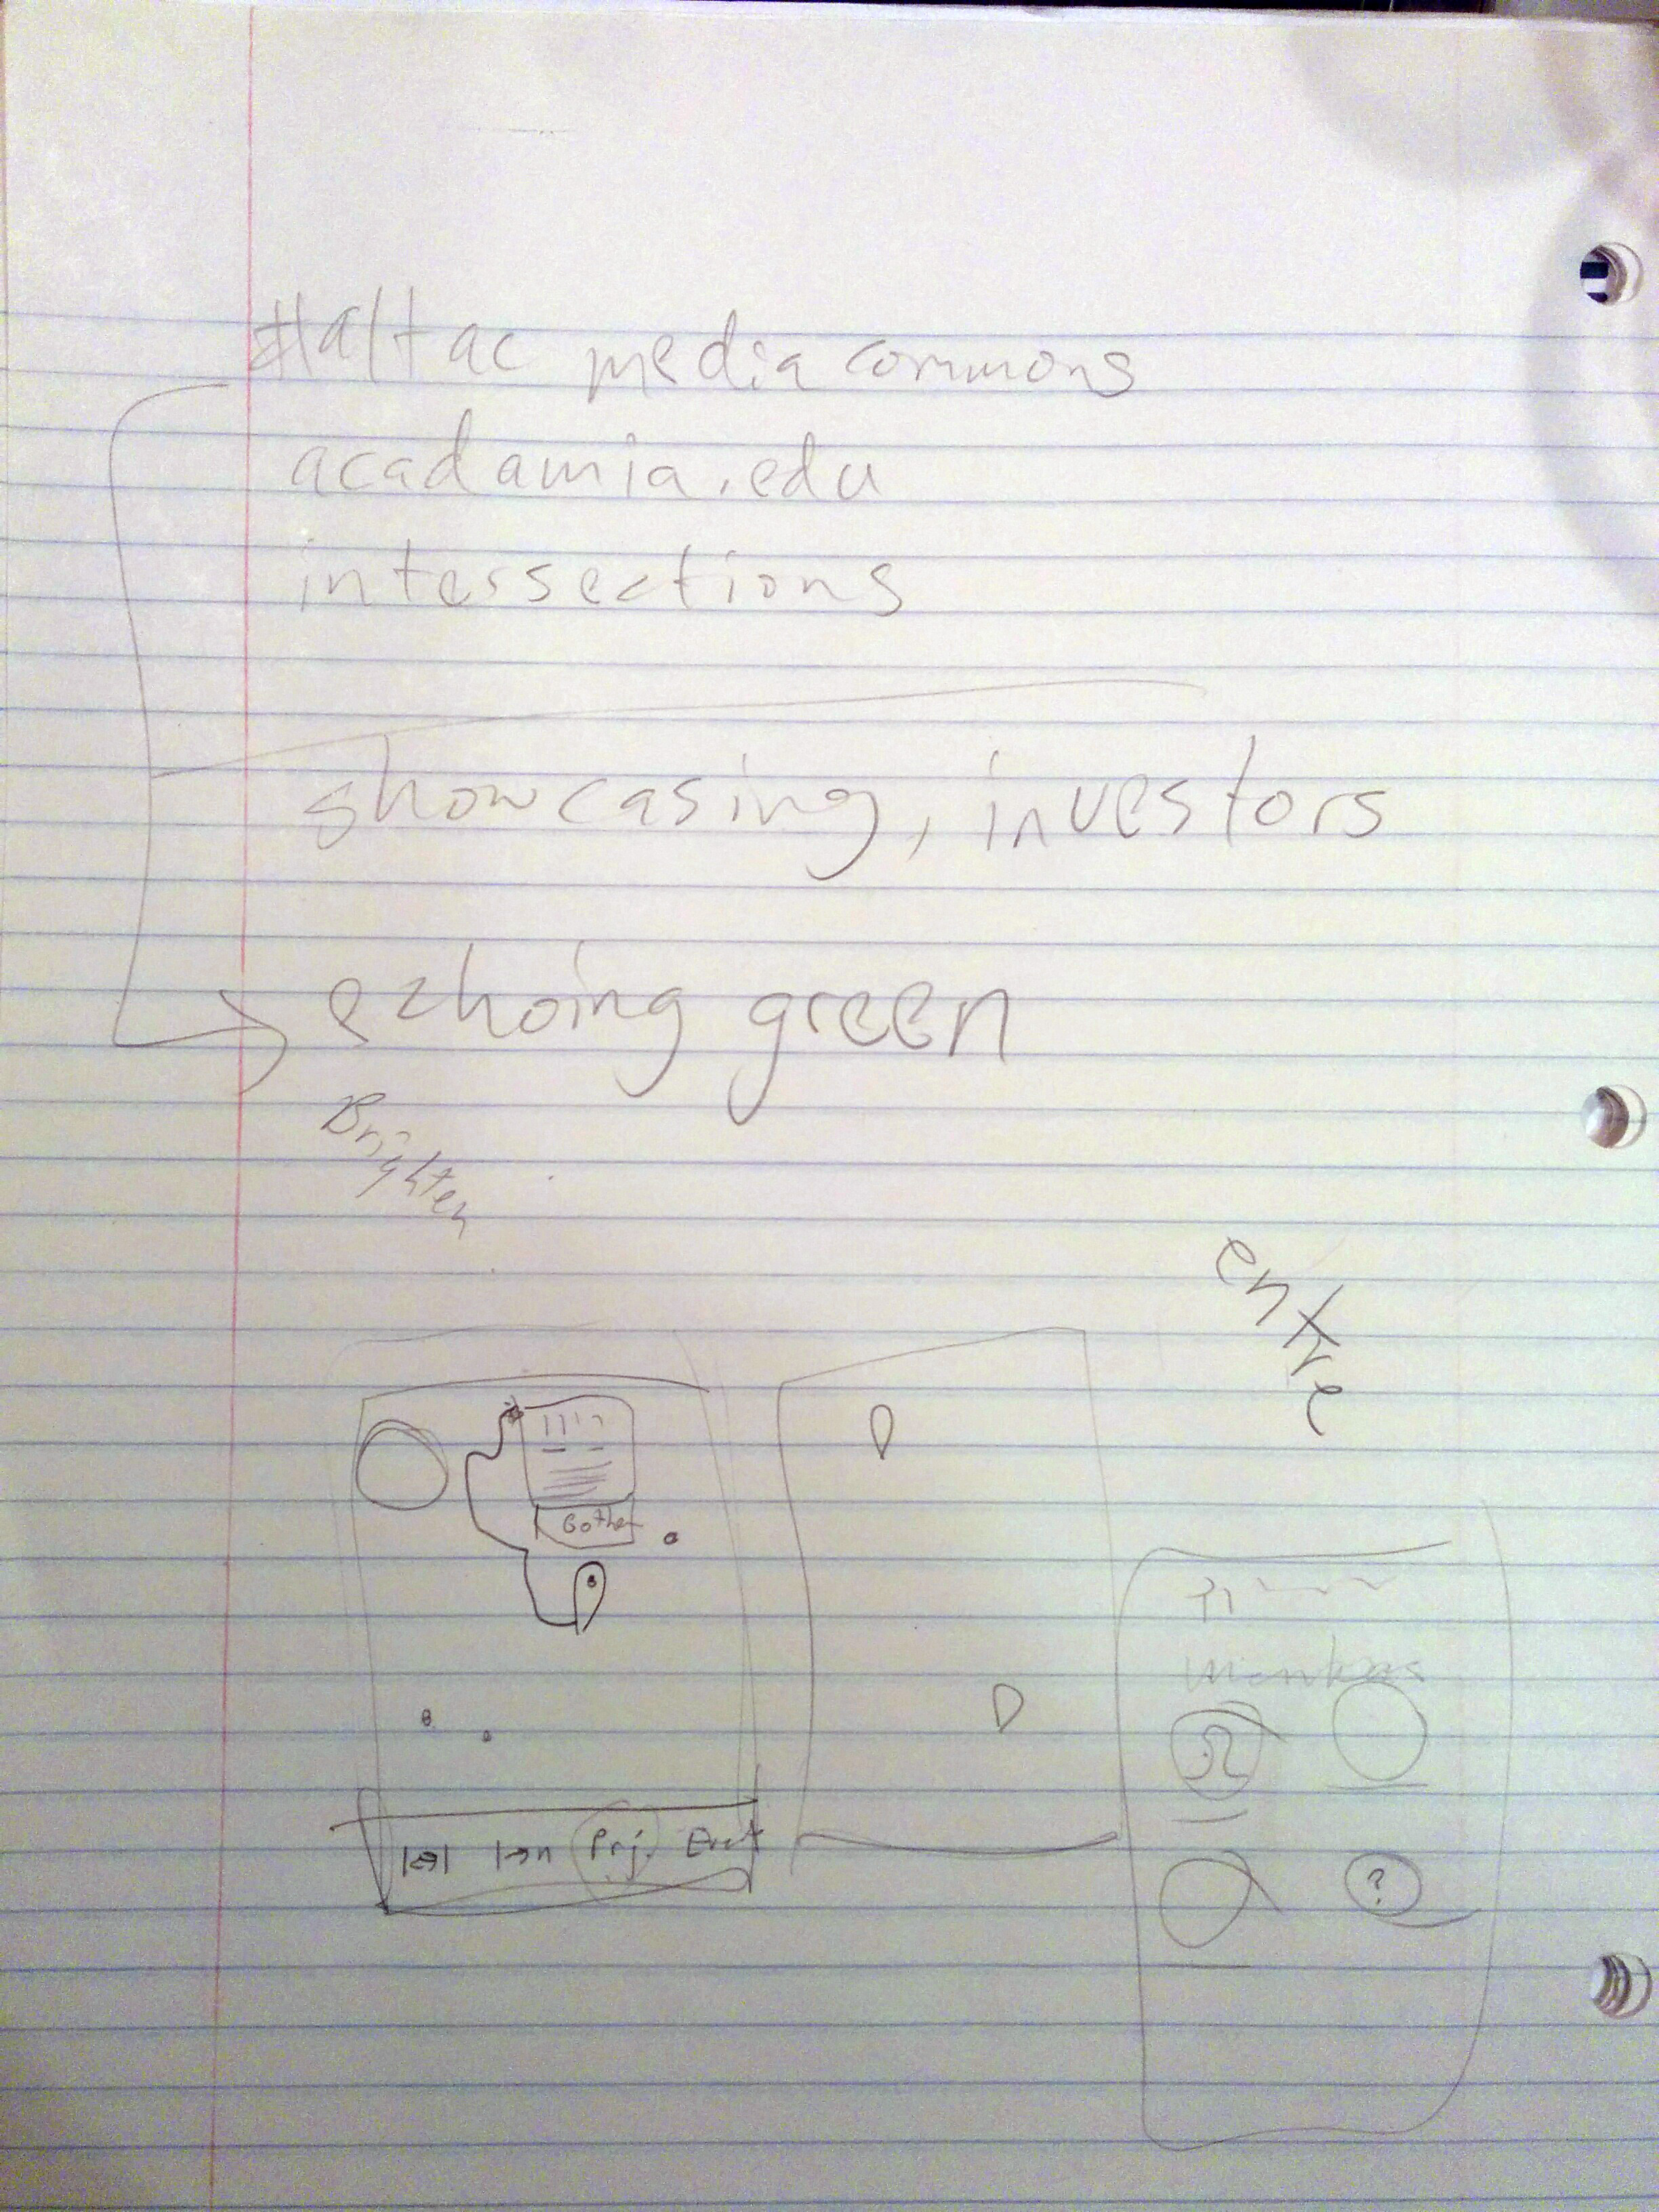 #altac media commons
acadamia.edu
intersections
showcasing, investors
echoing green
Brighten
entre
1↔1 1→n Prj.
?